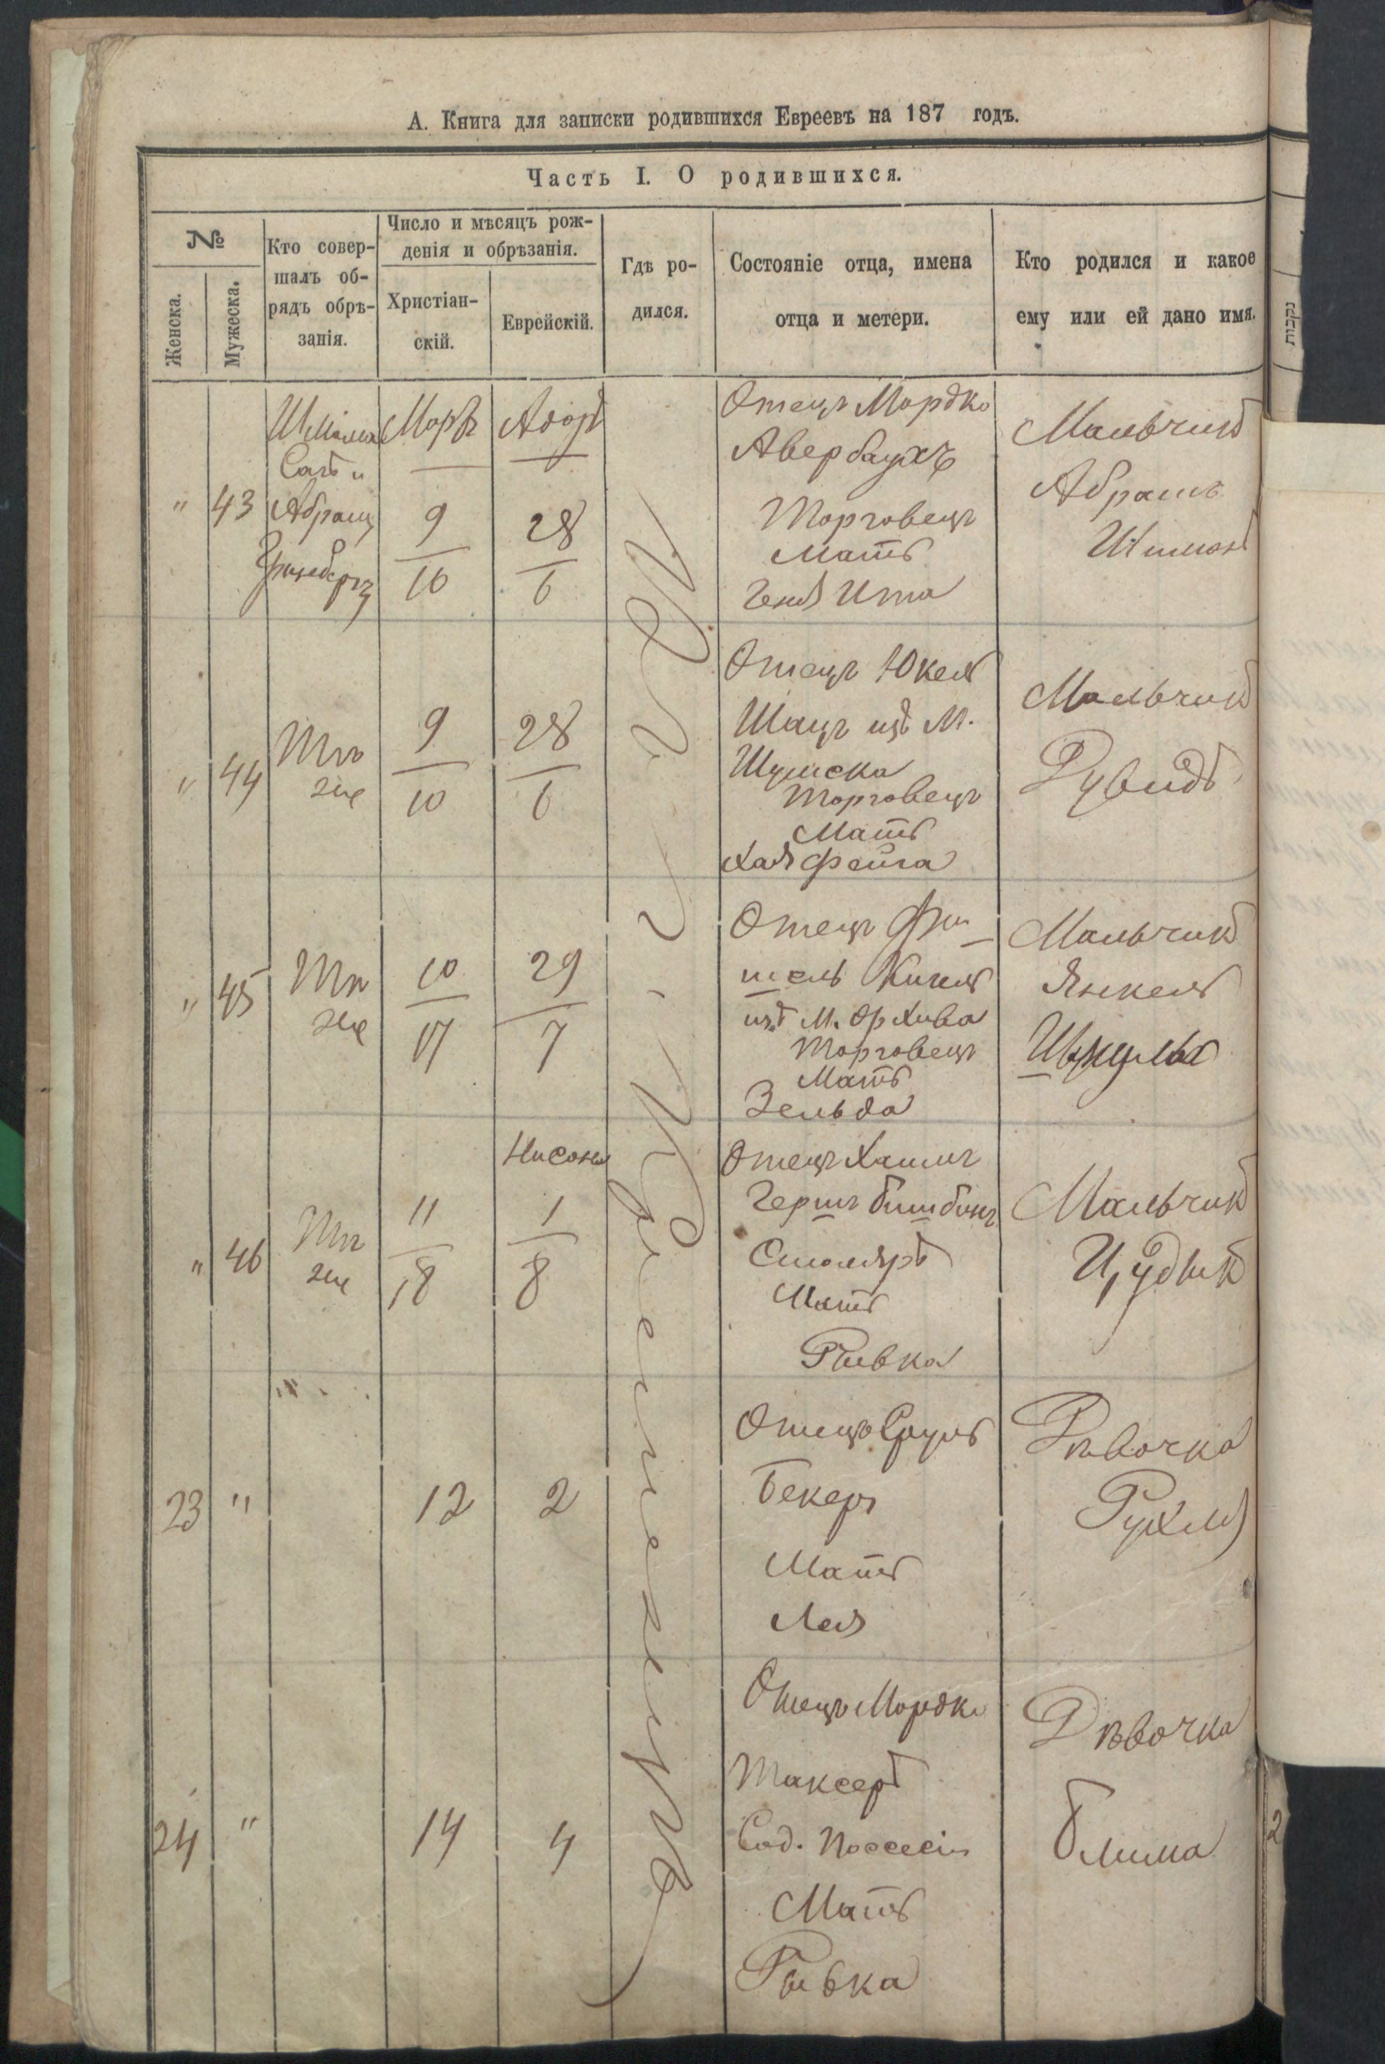 А. Книга для записки родившихся Евреевъ на 187 годъ.
Часть I. О родившихся.
№
Женска.
Мужеска.
Кто совер-
шалъ об-
рядъ обрѣ-
занія.
Число и мѣсяцъ рож-
денія и обрѣзанія.
Христіан-
скій.
Еврейскій.
Гдѣ ро-
дился.
Состояніе отца, имена
отца и метери.
Кто родился и какое
ему или ей дано имя.
נקבות
Въ г. Кременецѣ
" 43
Абрамъ
Гринбергъ
Мартъ
9
10
Адоръ
28
6
Отецъ Мордко
Авербаухъ
Торговецъ
Мать
Геня Ита
Мальчикъ
Абрамъ
Шимонъ
" 44
Тотъ
же
9
10
28
6
Отецъ Юкель
Шацъ изъ М.
Шумска
Торговецъ
Мать
Хая Фейга
Мальчикъ
Рувидъ
" 45
Тотъ
же
10
17
29
7
Отецъ Фи-
шель Кигель
изъ М.
Торговецъ
Мать
Зельда
Мальчикъ
Янкель
Шмулъ
" 46
Тотъ
же
11
18
Нисонъ
1
8
Отецъ Хаимъ
Гершъ
Столяръ
Мать
Ривка
Мальчикъ
Цудикъ
23 "
12
2
Отецъ Сруль
Бекеръ
Мать
Лея
Дѣвочка
Рухля
24 "
14
4
Отецъ Мордко
Таксеръ
Сод. Поссесіи
Мать
Ривка
Дѣвочка
Блима
2